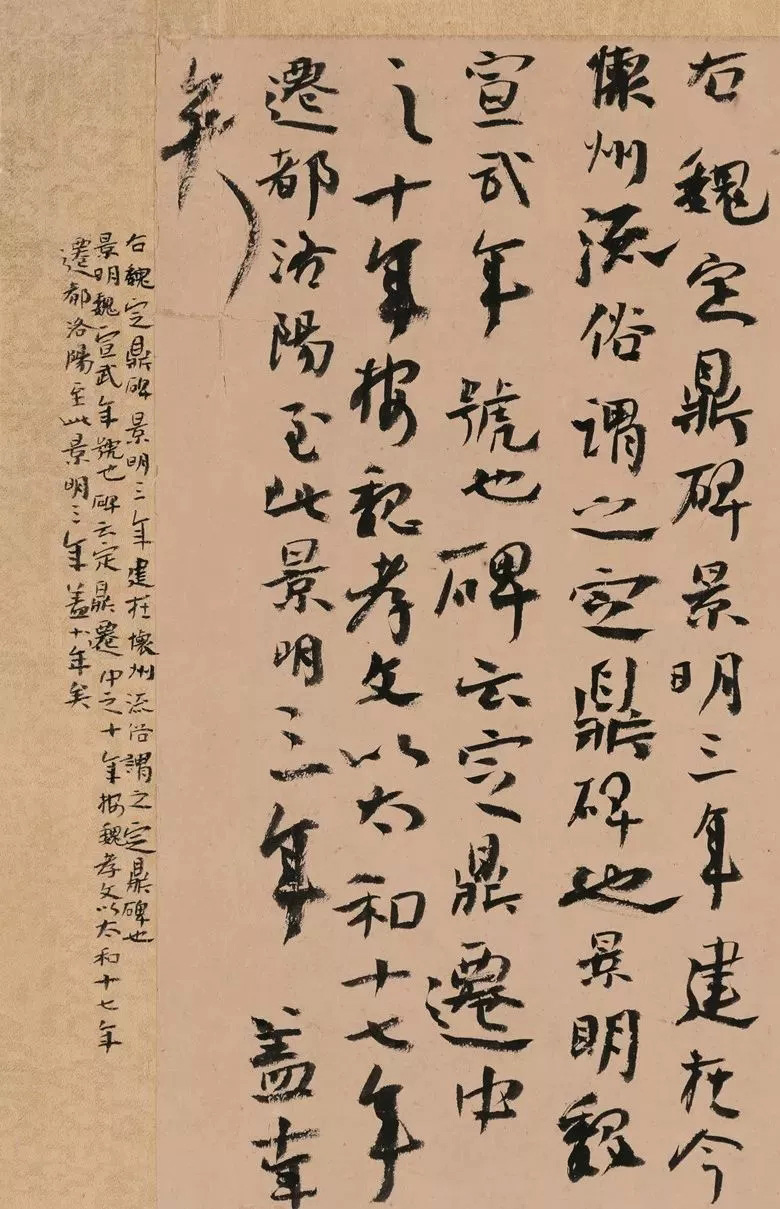 右魏定鼎碑景明三年建在今
懷州流俗謂之定鼎碑也景明魏
宣武年號也碑云定鼎遷中
之十年按魏孝文以太和十七年
遷都洛陽至此景明三年蓋十年
矣
右魏定鼎碑景明三年建在懷州流俗謂之定鼎碑也
景明魏宣武年號也碑云定鼎遷中之十年按魏孝文以太和十七年
遷都洛陽至此景明三年蓋十年矣